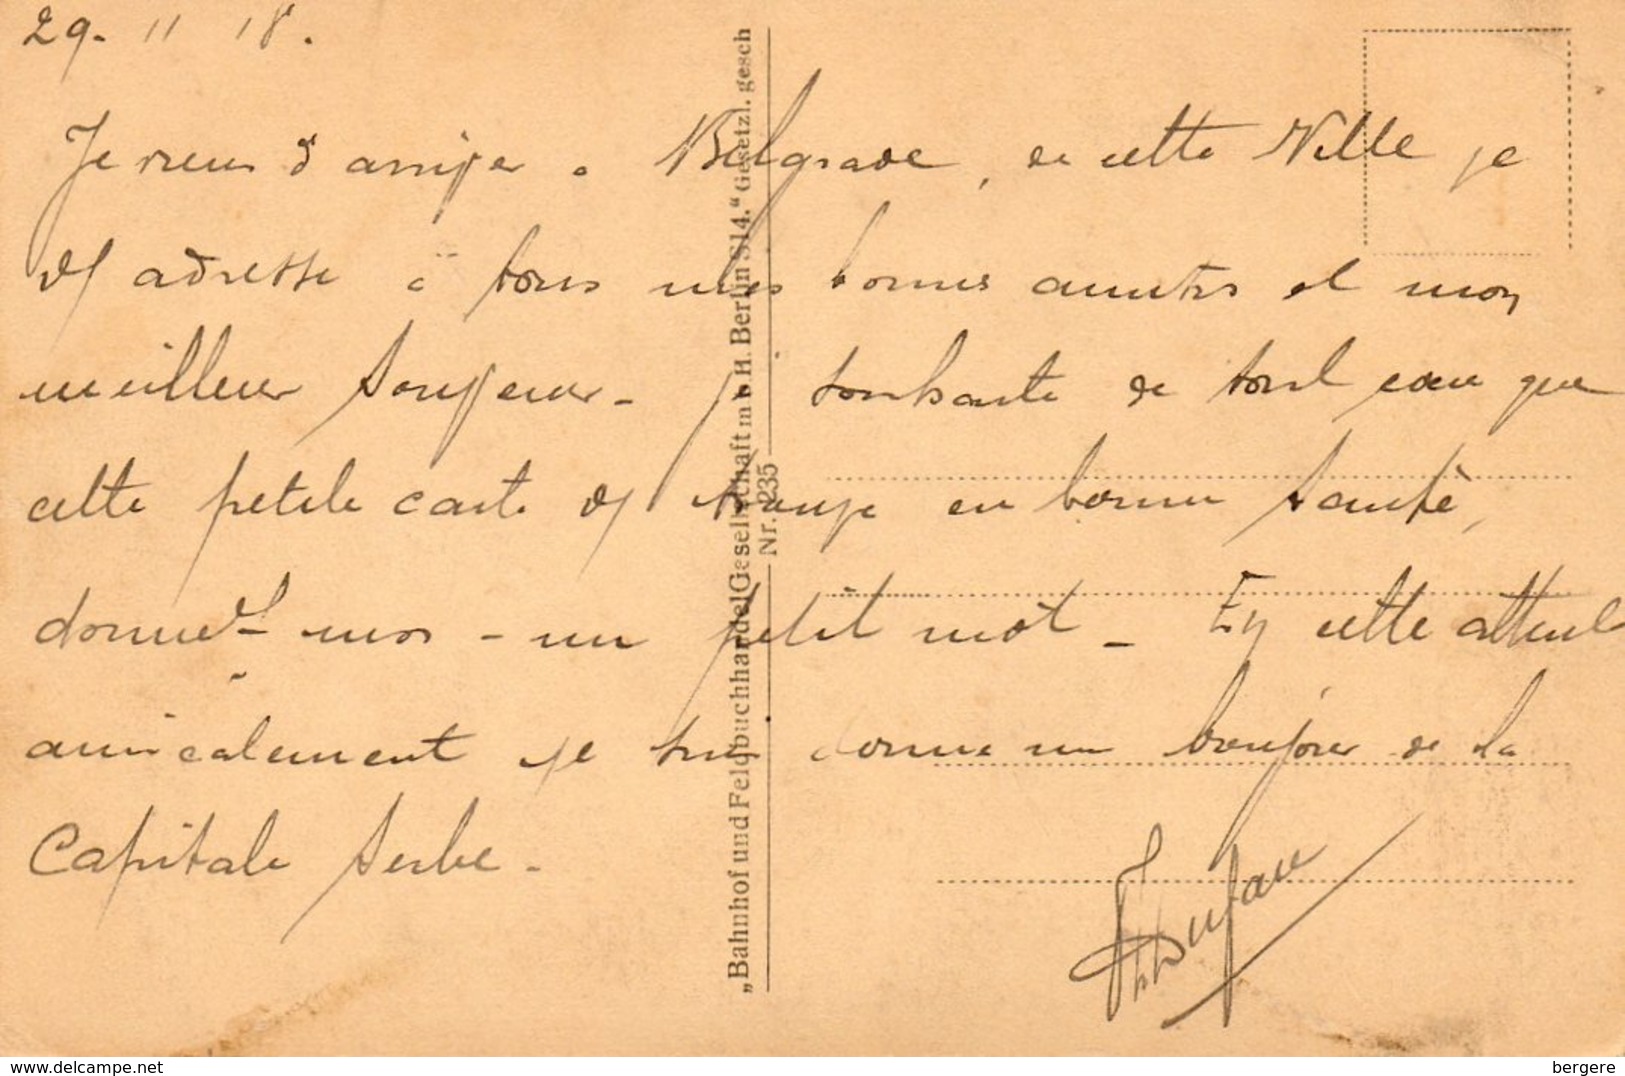 29. 11 18.
Je viens d'arriver à Belgrade, de cette Ville je
adresse à tous mes bonnes amities et mon
meilleur Souvenir - je souhaite de tout coeu que
cette petite carte trouve en bonne Santé,
donne moi - un petit mot - En cette attent
amicalement je donne un bonjour de la
Capitale Serbe -
„Bahnhof und Feldbuchhandel Gesellschaft m b H. Berlin S14.“ Gesetzl. gesch
Nr. 235
delcampe.net
bergere